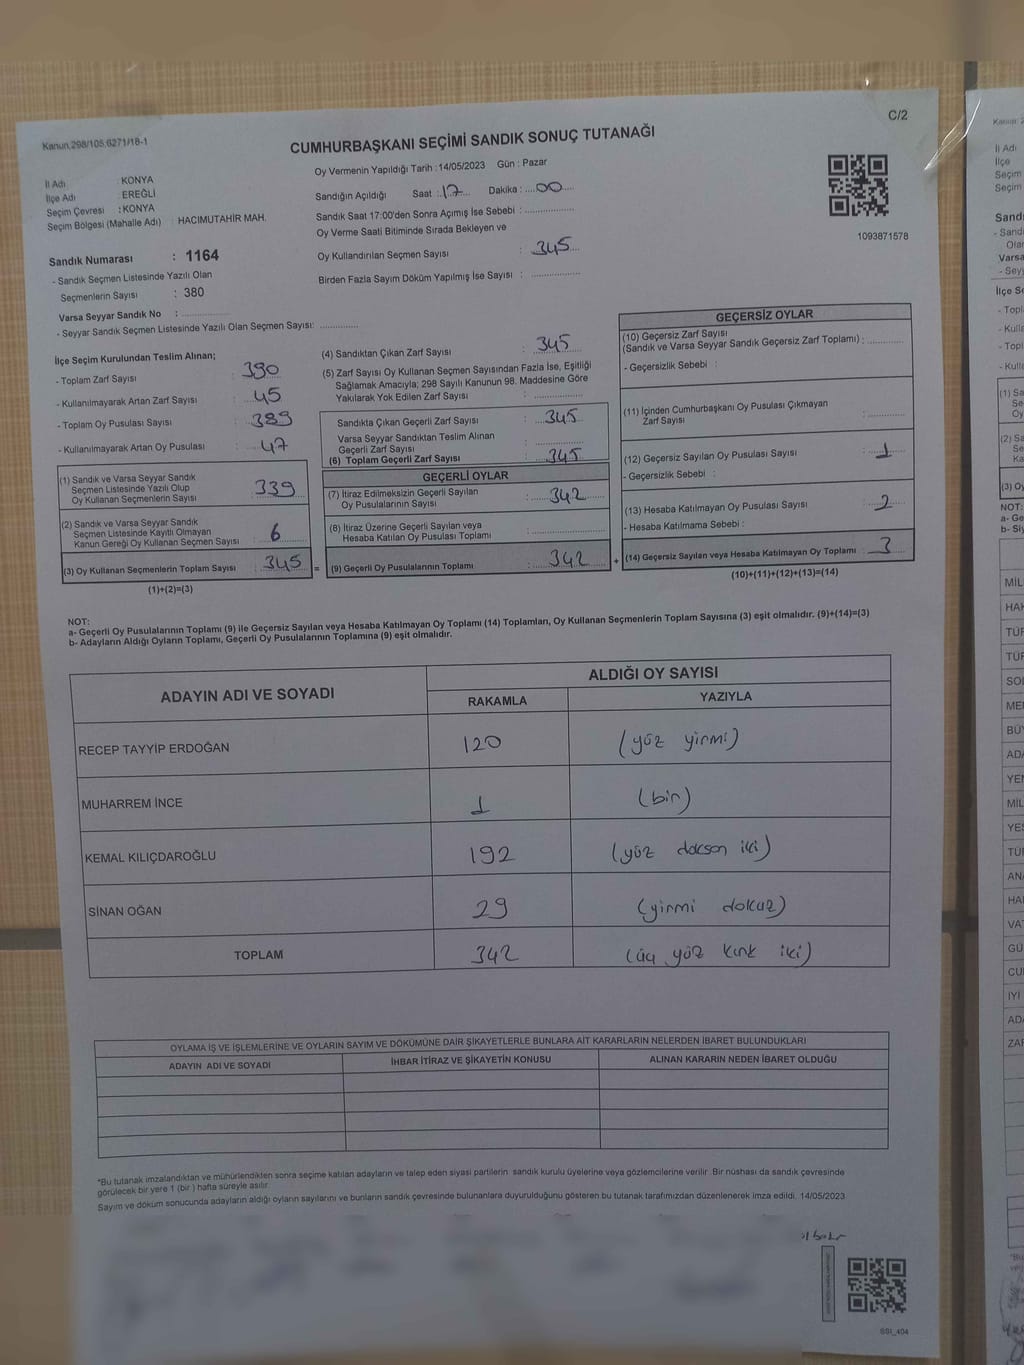 C/2
Kanun.298/105,6271/18-1
CUMHURBAŞKANI SEÇİMİ SANDIK SONUÇ TUTANAĞI
Oy Vermenin Yapıldığı Tarih :14/05/2023 Gün : Pazar
İl Adı : KONYA
İlçe Adı : EREĞLİ
Seçim Çevresi : KONYA
Seçim Bölgesi (Mahalle Adı) : HACIMUTAHİR MAH.
Sandığın Açıldığı Saat :17.... Dakika :....00....
Sandık Saat 17:00'den Sonra Açımış İse Sebebi : ................
Oy Verme Saati Bitiminde Sırada Bekleyen ve
Oy Kullandırılan Seçmen Sayısı : 345
Birden Fazla Sayım Döküm Yapılmış İse Sayısı : ................
1093871578
Sandık Numarası : 1164
- Sandık Seçmen Listesinde Yazılı Olan
Seçmenlerin Sayısı : 380
Varsa Seyyar Sandık No : ................
- Seyyar Sandık Seçmen Listesinde Yazılı Olan Seçmen Sayısı: ............
İlçe Seçim Kurulundan Teslim Alınan;
- Toplam Zarf Sayısı : 390
- Kullanılmayarak Artan Zarf Sayısı : 45
- Toplam Oy Pusulası Sayısı : 389
- Kullanılmayarak Artan Oy Pusulası : 47
(1) Sandık ve Varsa Seyyar Sandık
Seçmen Listesinde Yazılı Olup
Oy Kullanan Seçmenlerin Sayısı : 339
(2) Sandık ve Varsa Seyyar Sandık
Seçmen Listesinde Kayıtlı Olmayan
Kanun Gereği Oy Kullanan Seçmen Sayısı : 6
(3) Oy Kullanan Seçmenlerin Toplam Sayısı : 345 =
(1)+(2)=(3)
(4) Sandıktan Çıkan Zarf Sayısı : 345
(5) Zarf Sayısı Oy Kullanan Seçmen Sayısından Fazla İse, Eşitliği
Sağlamak Amacıyla; 298 Sayılı Kanunun 98. Maddesine Göre
Yakılarak Yok Edilen Zarf Sayısı : ............
Sandıkta Çıkan Geçerli Zarf Sayısı : 345
Varsa Seyyar Sandıktan Teslim Alınan
Geçerli Zarf Sayısı : ............
(6) Toplam Geçerli Zarf Sayısı : 345
GEÇERLİ OYLAR
(7) İtiraz Edilmeksizin Geçerli Sayılan
Oy Pusulalarının Sayısı : 342
(8) İtiraz Üzerine Geçerli Sayılan veya
Hesaba Katılan Oy Pusulası Toplamı : ............
(9) Geçerli Oy Pusulalarının Toplamı : 342 +
GEÇERSİZ OYLAR
(10) Geçersiz Zarf Sayısı
(Sandık ve Varsa Seyyar Sandık Geçersiz Zarf Toplamı) : ............
- Geçersizlik Sebebi :
(11) İçinden Cumhurbaşkanı Oy Pusulası Çıkmayan
Zarf Sayısı : ............
(12) Geçersiz Sayılan Oy Pusulası Sayısı : 1
- Geçersizlik Sebebi :
(13) Hesaba Katılmayan Oy Pusulası Sayısı : 2
- Hesaba Katılmama Sebebi :
(14) Geçersiz Sayılan veya Hesaba Katılmayan Oy Toplamı : 3
(10)+(11)+(12)+(13)=(14)
NOT:
a- Geçerli Oy Pusulalarının Toplamı (9) ile Geçersiz Sayılan veya Hesaba Katılmayan Oy Toplamı (14) Toplamları, Oy Kullanan Seçmenlerin Toplam Sayısına (3) eşit olmalıdır. (9)+(14)=(3)
b- Adayların Aldığı Oyların Toplamı, Geçerli Oy Pusulalarının Toplamına (9) eşit olmalıdır.
ADAYIN ADI VE SOYADI
ALDIĞI OY SAYISI
RAKAMLA YAZIYLA
RECEP TAYYİP ERDOĞAN 120 (yüz yirmi)
MUHARREM İNCE 1 (bir)
KEMAL KILIÇDAROĞLU 192 (yüz doksan iki)
SİNAN OĞAN 29 (yirmi dokuz)
TOPLAM 342 (üç yüz kırk iki)
OYLAMA İŞ VE İŞLEMLERİNE VE OYLARIN SAYIM VE DÖKÜMÜNE DAİR ŞİKAYETLERLE BUNLARA AİT KARARLARIN NELERDEN İBARET BULUNDUKLARI
ADAYIN ADI VE SOYADI İHBAR İTİRAZ VE ŞİKAYETİN KONUSU ALINAN KARARIN NEDEN İBARET OLDUĞU
*Bu tutanak imzalandıktan ve mühürlendikten sonra seçime katılan adayların ve talep eden siyasi partilerin sandık kurulu üyelerine veya gözlemcilerine verilir. Bir nüshası da sandık çevresinde
görülecek bir yere 1 (bir ) hafta süreyle asılır.
Sayım ve döküm sonucunda adayların aldığı oyların sayılarını ve bunların sandık çevresinde bulunanlara duyurulduğunu gösteren bu tutanak tarafımızdan düzenlenerek imza edildi. 14/05/2023
SSI_404